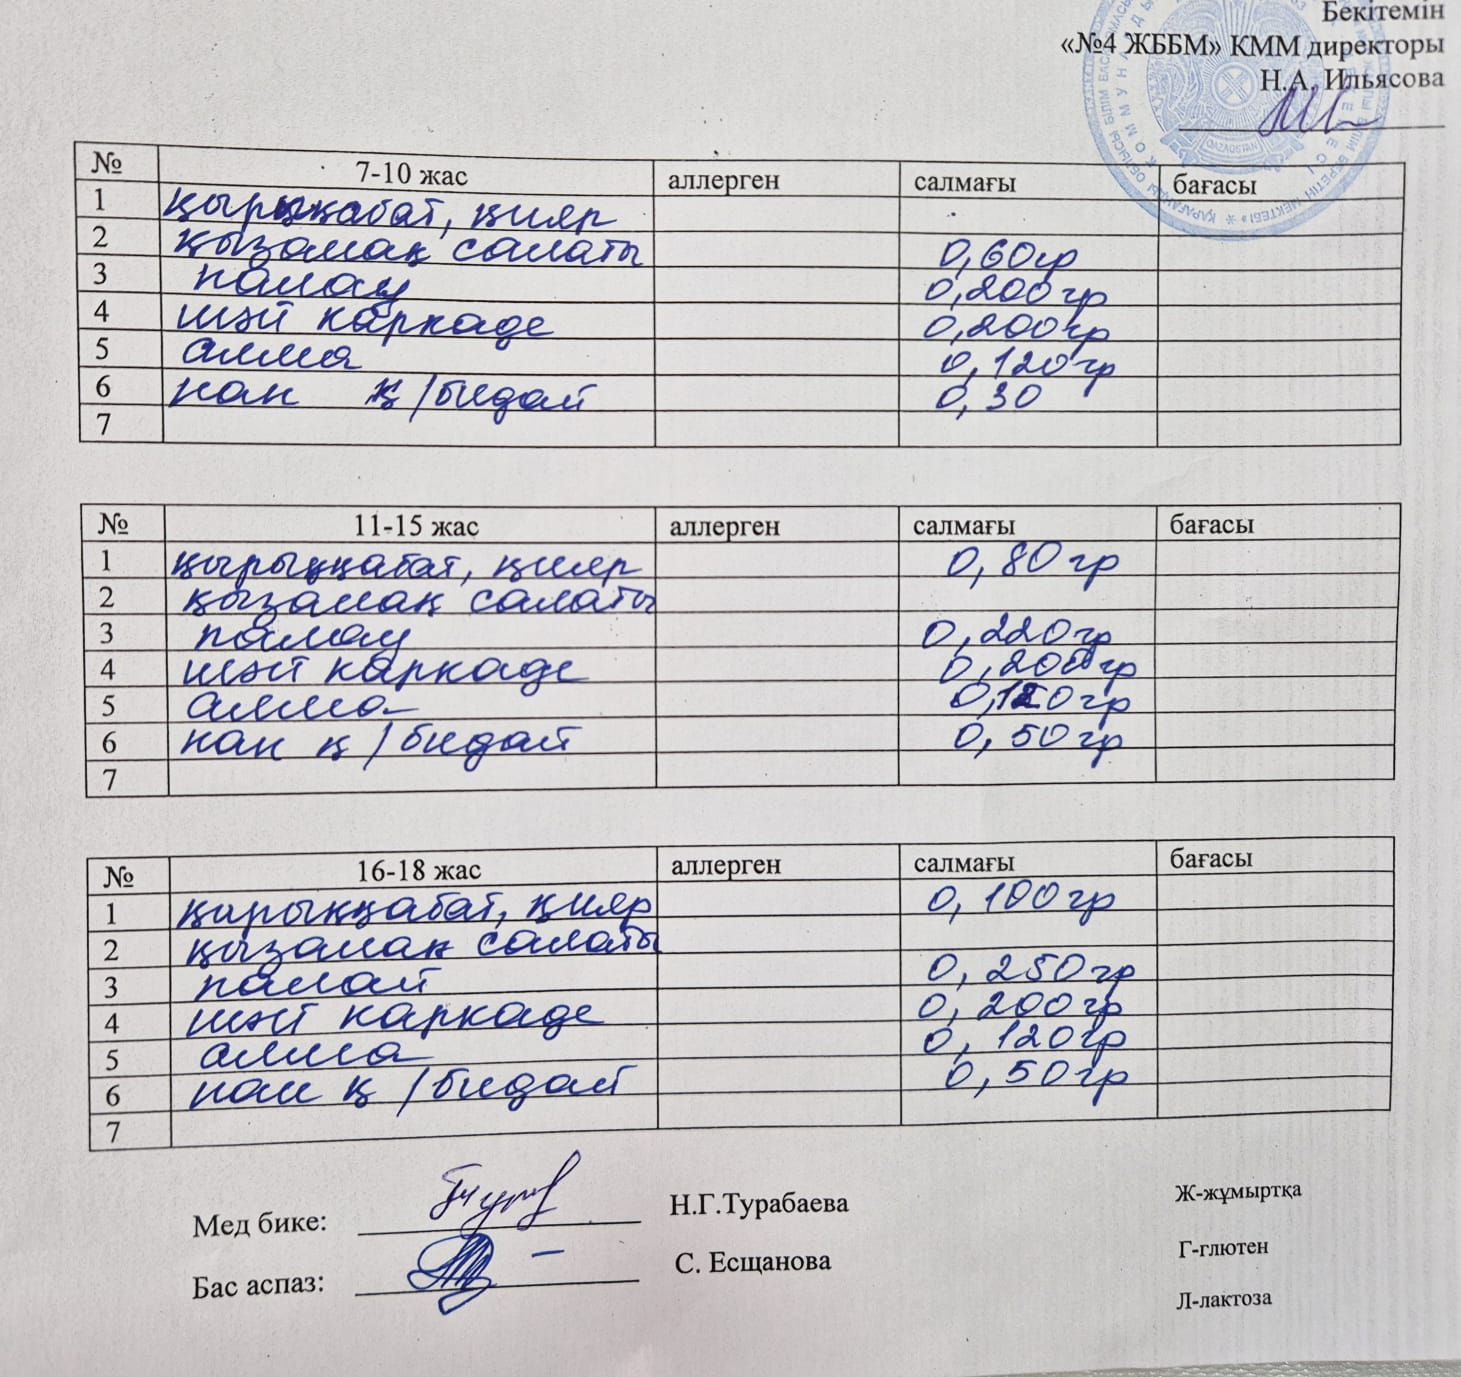 Бекітемін
«№4 ЖББМ» КММ директоры
Н.А. Ильясова
№ 7-10 жас аллерген салмағы бағасы
1 қырыққабат, қияр
2 қызанақ салаты 0,60гр
3 палау 0,200гр
4 шәй каркаде 0,200гр
5 алма 0,120гр
6 нан қ/бидай 0,30
7
№ 11-15 жас аллерген салмағы бағасы
1 қырыққабат, қияр 0,80гр
2 қызанақ салаты
3 палау 0,220гр
4 шәй каркаде 0,200гр
5 алма 0,120гр
6 нан қ/бидай 0,50гр
7
№ 16-18 жас аллерген салмағы бағасы
1 қырыққабат, қияр 0,100гр
2 қызанақ салаты
3 палау 0,250гр
4 шәй каркаде 0,200гр
5 алма 0,120гр
6 нан қ/бидай 0,50гр
7
Мед бике: Н.Г.Турабаева
Бас аспаз: С. Есщанова
Ж-жұмыртқа
Г-глютен
Л-лактоза
QAZAQSTAN